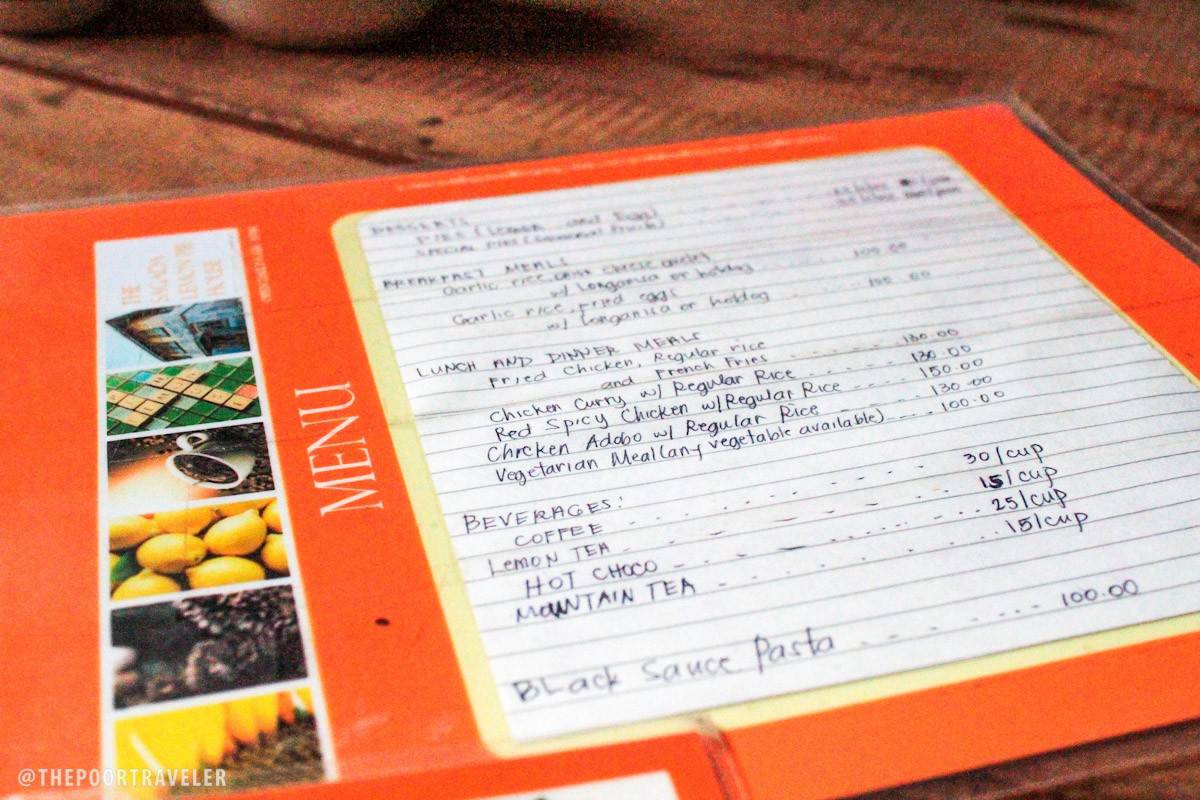 THE
SAGADA
LEMON PIE
HOUSE
MENU
DESSERTS
PIES (Lemon and Egg)
SPECIAL PIES (Seasonal Fruits)
BREAKFAST MEALS
Garlic rice, cheese omelet
w/ Longanisa or hotdog 100.00
Garlic rice, Fried eggs
w/ Longanisa or hotdog 100.00
LUNCH AND DINNER MEALS
Fried Chicken, Regular rice
and French Fries - - - - - - 130.00
Chicken Curry w/ Regular Rice - - - - 130.00
Red Spicy Chicken w/Regular Rice - - - - 150.00
Chicken Adobo w/ Regular Rice - - - - 130.00
Vegetarian Meal(any vegetable available) - - - - 100.00
BEVERAGES:
COFFEE - - - - - - - - 30/cup
Lemon TEA - - - - - - - - 15/cup
HOT CHOCO - - - - - - - - 25/cup
MOUNTAIN TEA - - - - - - - - 15/cup
BLack Sauce Pasta - - - - - - - 100.00
@THEPOORTRAVELER